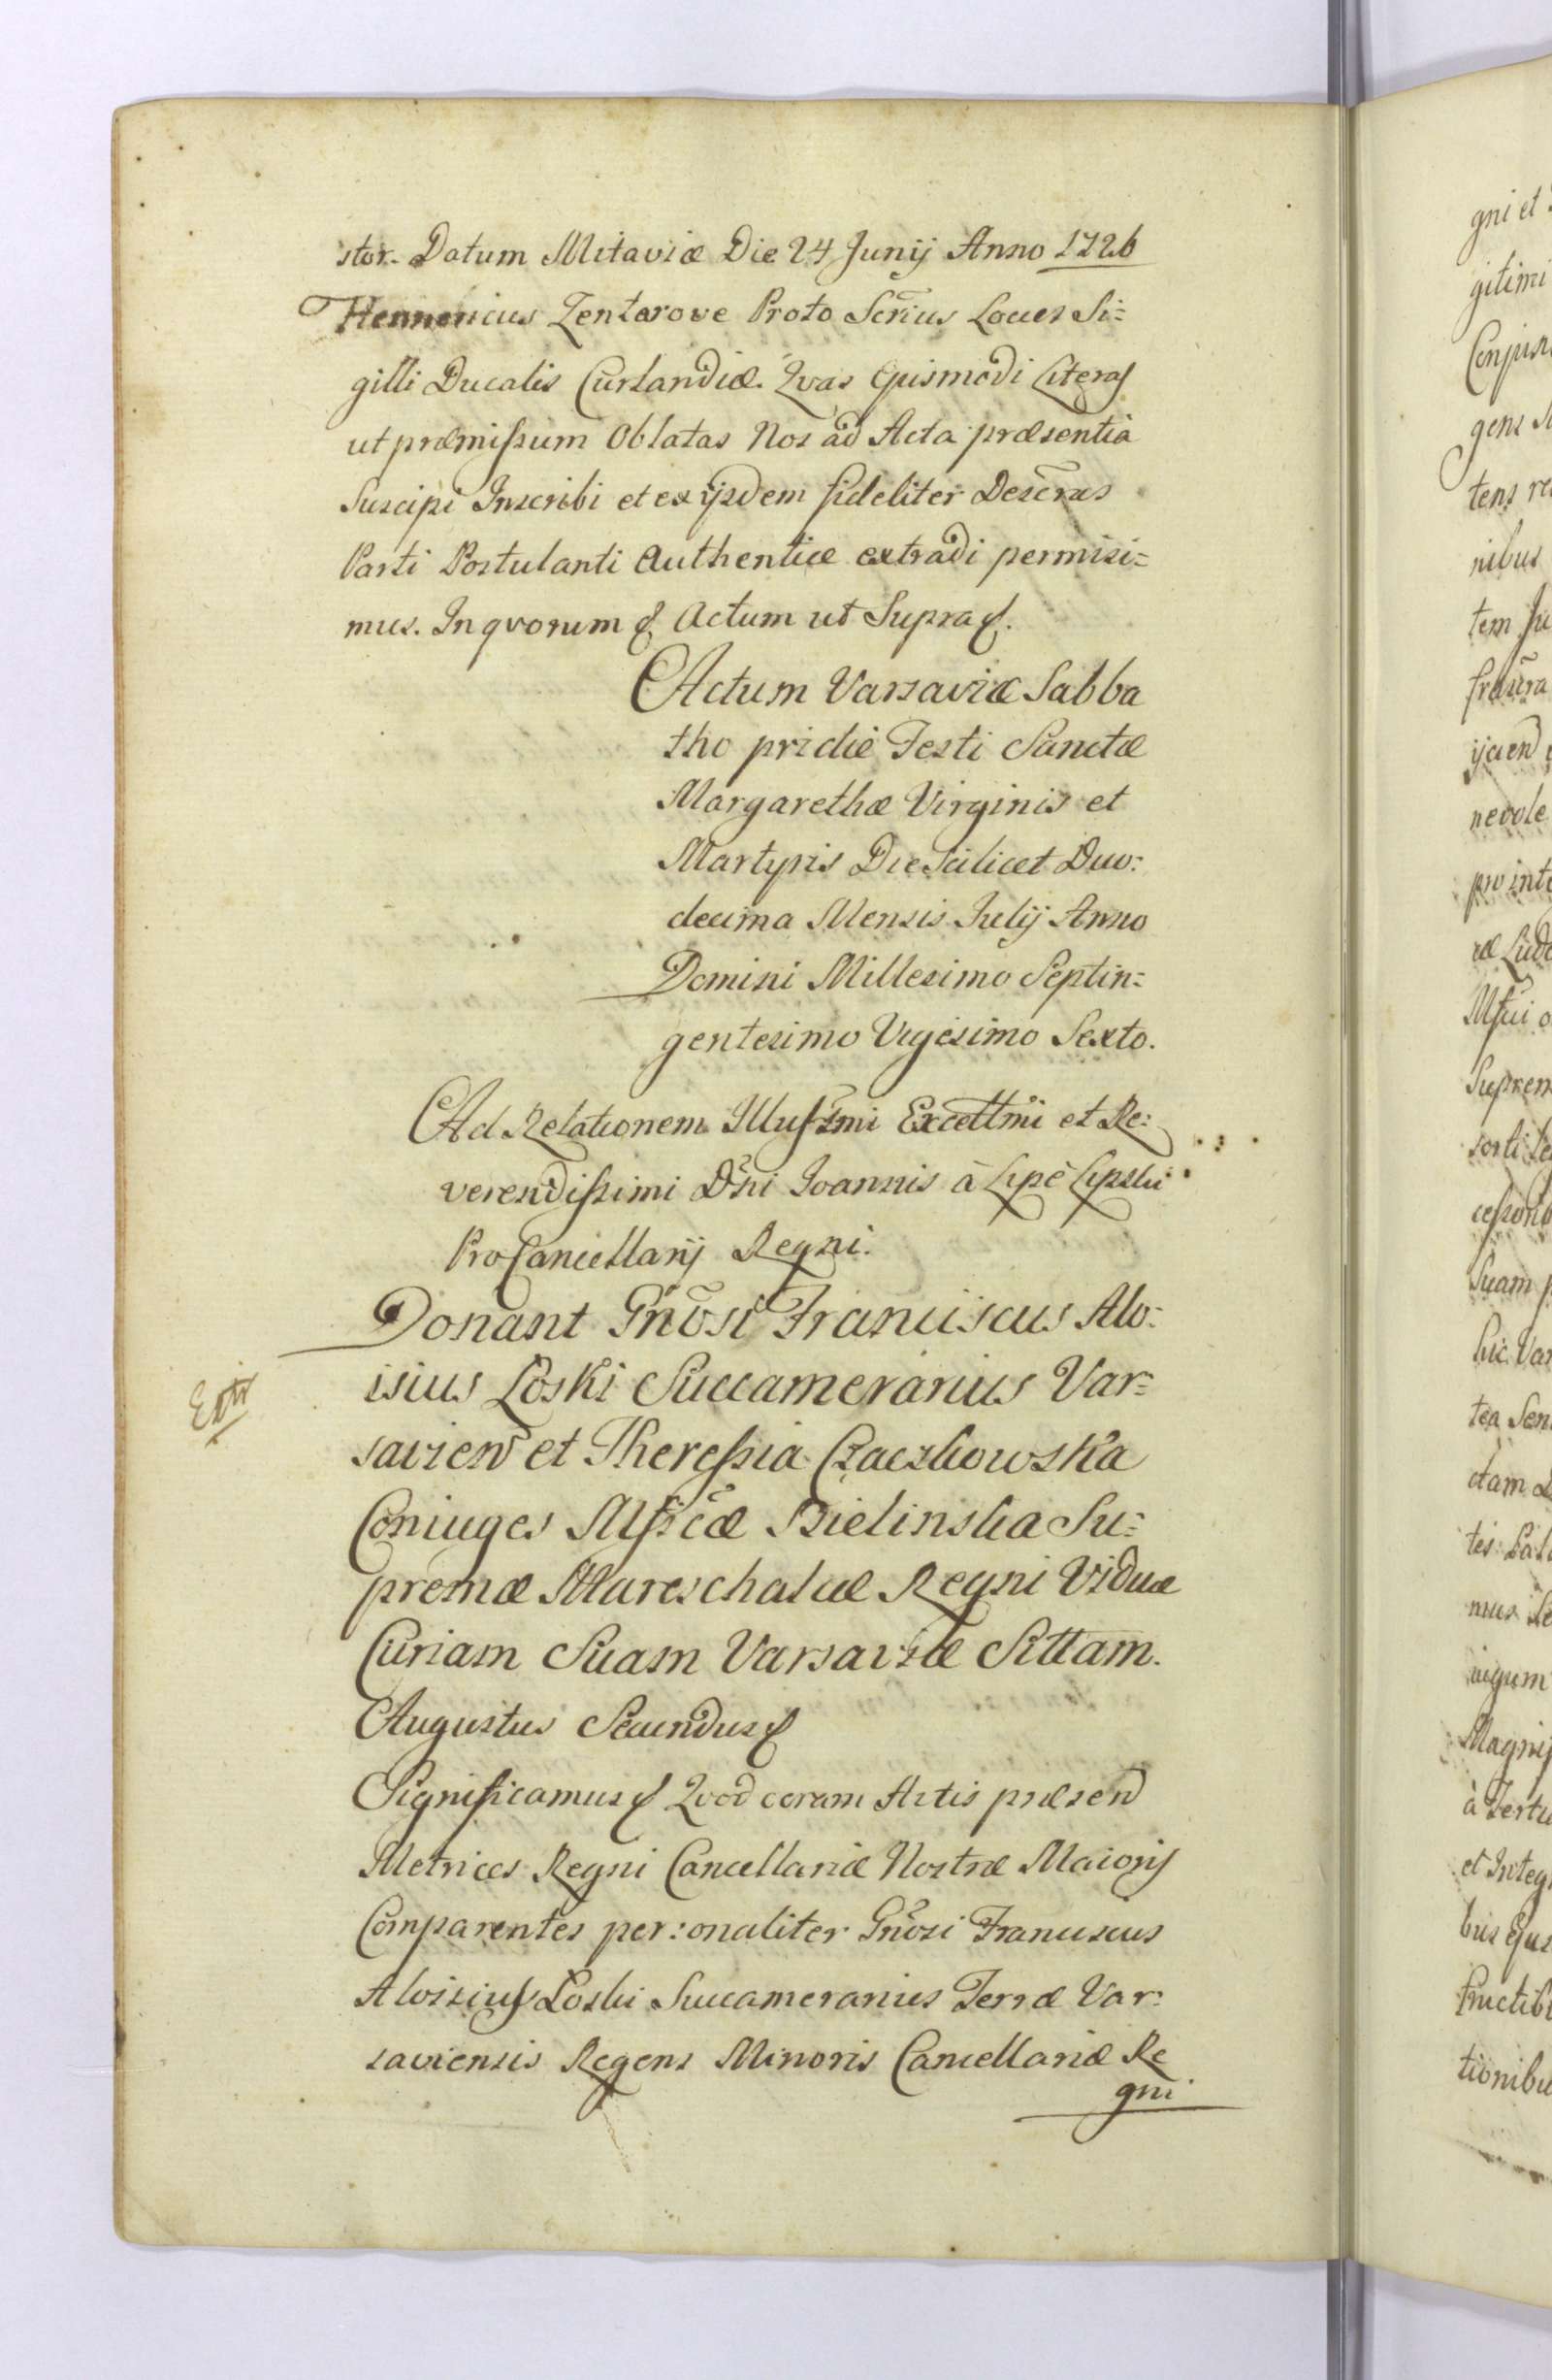 stor. Datum Mitaviæ Die 24 Junij Anno 1726
Hennericus Zentarove Proto Scrius Locus Si=
gilli Ducalis Curlandiæ. Qvas Ejusmodi Literas
ut præmissum Oblatas Nos ad Acta præsentia
Suscipi Inscribi et ex ijsdem fideliter Descras
Parti Postulanti Authentice extradi permisi=
mus. In qvorum &. Actum ut Supra &.
Actum Varsaviæ Sabba
tho pridie Festi Sanctæ
Margarethæ Virginis et
Martyris Die Scilicet Duo:
decima Mensis Julij Anno
Domini Millesimo Septin=
gentesimo Vigesimo Sexto.
Ad Relationem Illusrmi Excellmi et Re:
verendissimi Dñi Joannis à Lipe Lipski
ProCancellarij Regni.
Donant Gñosi Franciscus Alo:
isius Loski Succamerarius Var=
savien et Theressia Czaczkowska
Coniuges Msficæ Bielinska Su=
premæ Mareschalcæ Regni Viduæ
Curiam Suam Varsaviæ Sittam.
Augustus Secundus &
Significamus & Qvod coram Actis præsen
Metrices Regni Cancellariæ Nostræ Maioris
Comparentes personaliter Gñosi Franciscus
Aloisius Loski Succamerarius Terræ Var:
saviensis Regens Minoris Cancellariæ Re
gni
gni et
gitimi
gens
tens
nibus
tem
nevole
pro int
Msfui
Suprem
Suam
huc Var
tea
ctam
mus
Magnif
et Integ
bus Ejus
fructib
tionibu